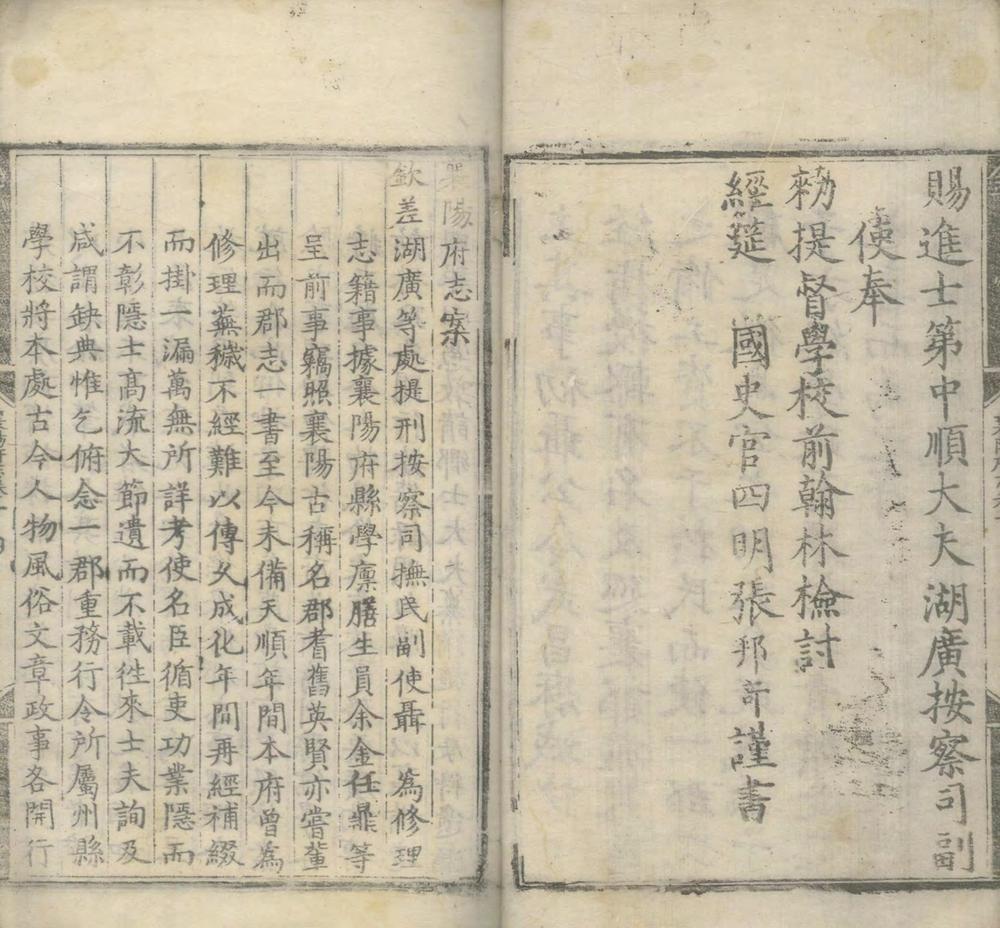 賜進士第中順大夫湖廣按察司副
使奉
勑提督學校前翰林檢討
經筵　國史官四明張邦　謹書
襄陽府志案
欽差湖廣等處提刑按察司撫民副使聶　為修理
志籍事據襄陽府縣學廩膳生員余金任鼎等
呈前事竊照襄陽古稱名郡耆舊英賢亦嘗輩
出而郡志一書至今未備天順年間本府曾為
修理蕪穢不經難以傳久成化年間再經補綴
而掛一漏萬無所詳考使名臣循吏功業隱而
不彰隱士髙流大節遺而不載徃來士夫詢及
咸謂缺典惟乞俯念一郡重務行令所屬州縣
學校將本處古今人物風俗文章政事各開行